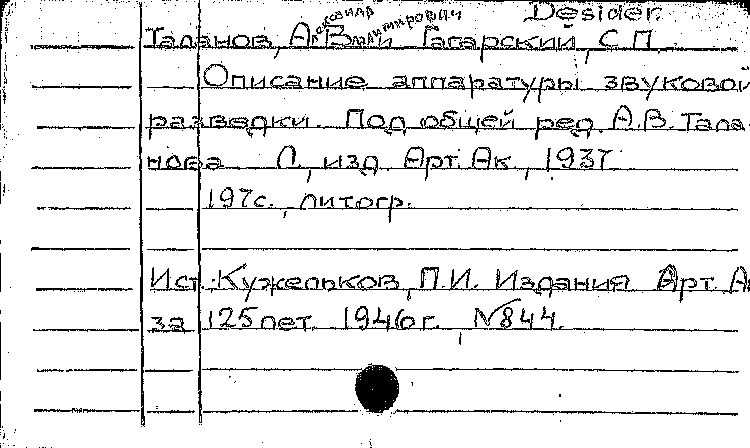 Desider.
Александр Владимирович
Таланов, А.В. и Гагарский, С.П.
Описание аппаратуры звуковой
разведки. Под общей ред. А.В. Тала-
нова. Л., изд. Арт. Ак., 1937.
197с., литогр.
Ист.: Кужельков, П.И. Издания Арт. Ак
за 125 лет. 1946 г., №844.